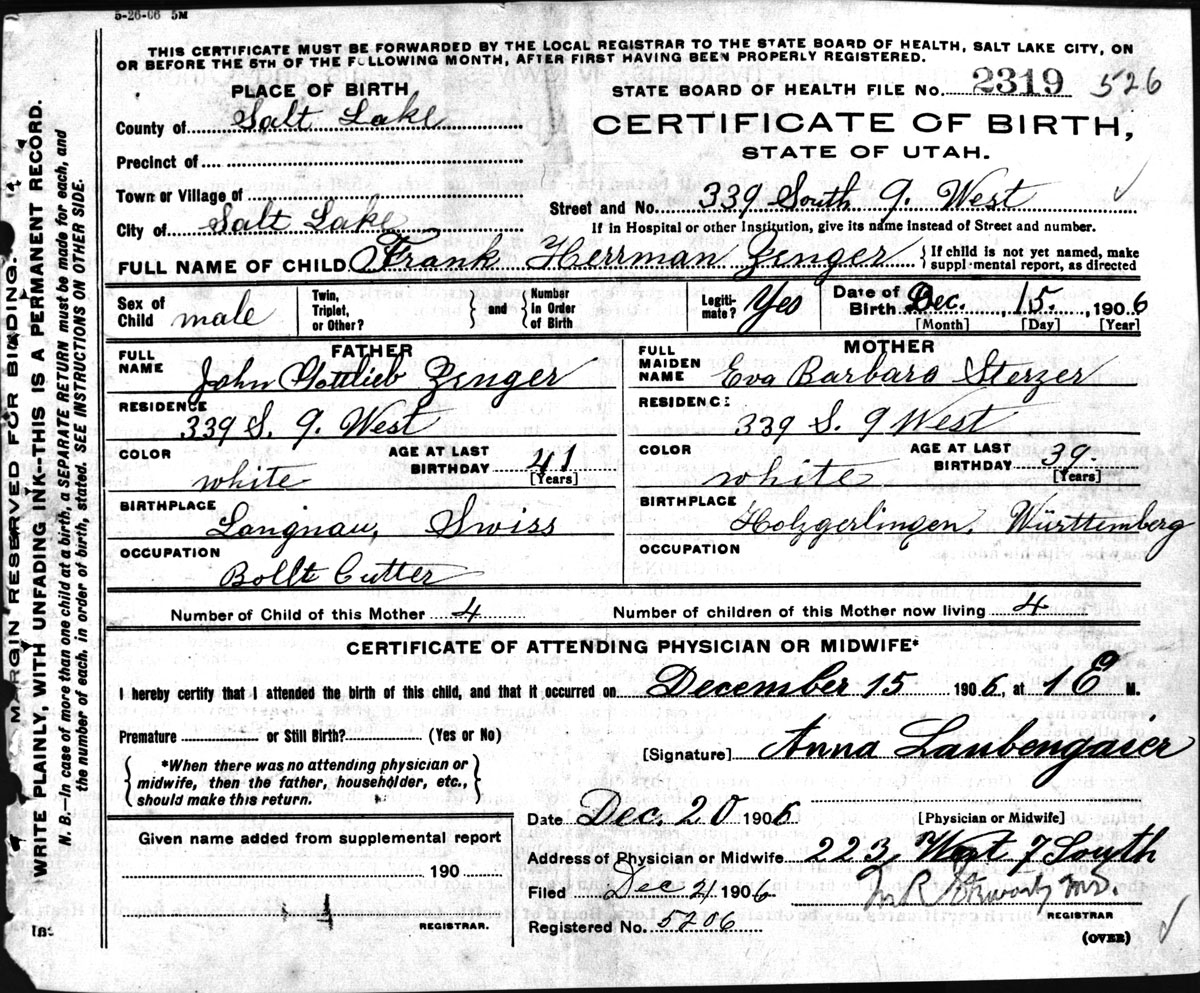 5-26-06 5M
THIS CERTIFICATE MUST BE FORWARDED BY THE LOCAL REGISTRAR TO THE STATE BOARD OF HEALTH, SALT LAKE CITY, ON
OR BEFORE THE 5TH OF THE FOLLOWING MONTH, AFTER FIRST HAVING BEEN PROPERLY REGISTERED.
PLACE OF BIRTH
STATE BOARD OF HEALTH FILE No. 2319 526
County of Salt Lake
CERTIFICATE OF BIRTH,
STATE OF UTAH.
Precinct of
Town or Village of
Street and No. 339 South 9. West
City of Salt Lake
If in Hospital or other Institution, give its name instead of Street and number.
FULL NAME OF CHILD Frank Herrman Zenger { If child is not yet named, make
suppl·mental report, as directed
Sex of Child male
Twin, Triplet, or Other? } and { Number In Order of Birth
Legiti-mate? Yes
Date of Birth Dec. 15. 1906
[Month] [Day] [Year]
FATHER
FULL NAME John Gottlieb Zenger
RESIDENCE 339 S. 9. West
COLOR white AGE AT LAST BIRTHDAY 41 [Years]
BIRTHPLACE Langnau, Swiss
OCCUPATION Bollt Cutter
MOTHER
FULL MAIDEN NAME Eva Barbara Sterzer
RESIDENCE 339 S. 9 West
COLOR white AGE AT LAST BIRTHDAY 39 [Years]
BIRTHPLACE Holzgerlingen, Württemberg
OCCUPATION
Number of Child of this Mother 4 Number of children of this Mother now living 4
CERTIFICATE OF ATTENDING PHYSICIAN OR MIDWIFE*
I hereby certify that I attended the birth of this child, and that it occurred on December 15 1906, at 1 E M.
Premature or Still Birth? (Yes or No)
[Signature] Anna Laubengaier
*When there was no attending physician or
midwife, then the father, householder, etc.,
should make this return.
Date Dec. 20 1906
[Physician or Midwife]
Given name added from supplemental report
190
REGISTRAR.
Address of Physician or Midwife 223 West 7 South
Filed Dec 21 1906
REGISTRAR
Registered No. 5206
(OVER)
MARGIN RESERVED FOR BINDING.
WRITE PLAINLY, WITH UNFADING INK--THIS IS A PERMANENT RECORD.
N. B.--In case of more than one child at a birth, a SEPARATE RETURN must be made for each, and
the number of each, in order of birth, stated. SEE INSTRUCTIONS ON OTHER SIDE.